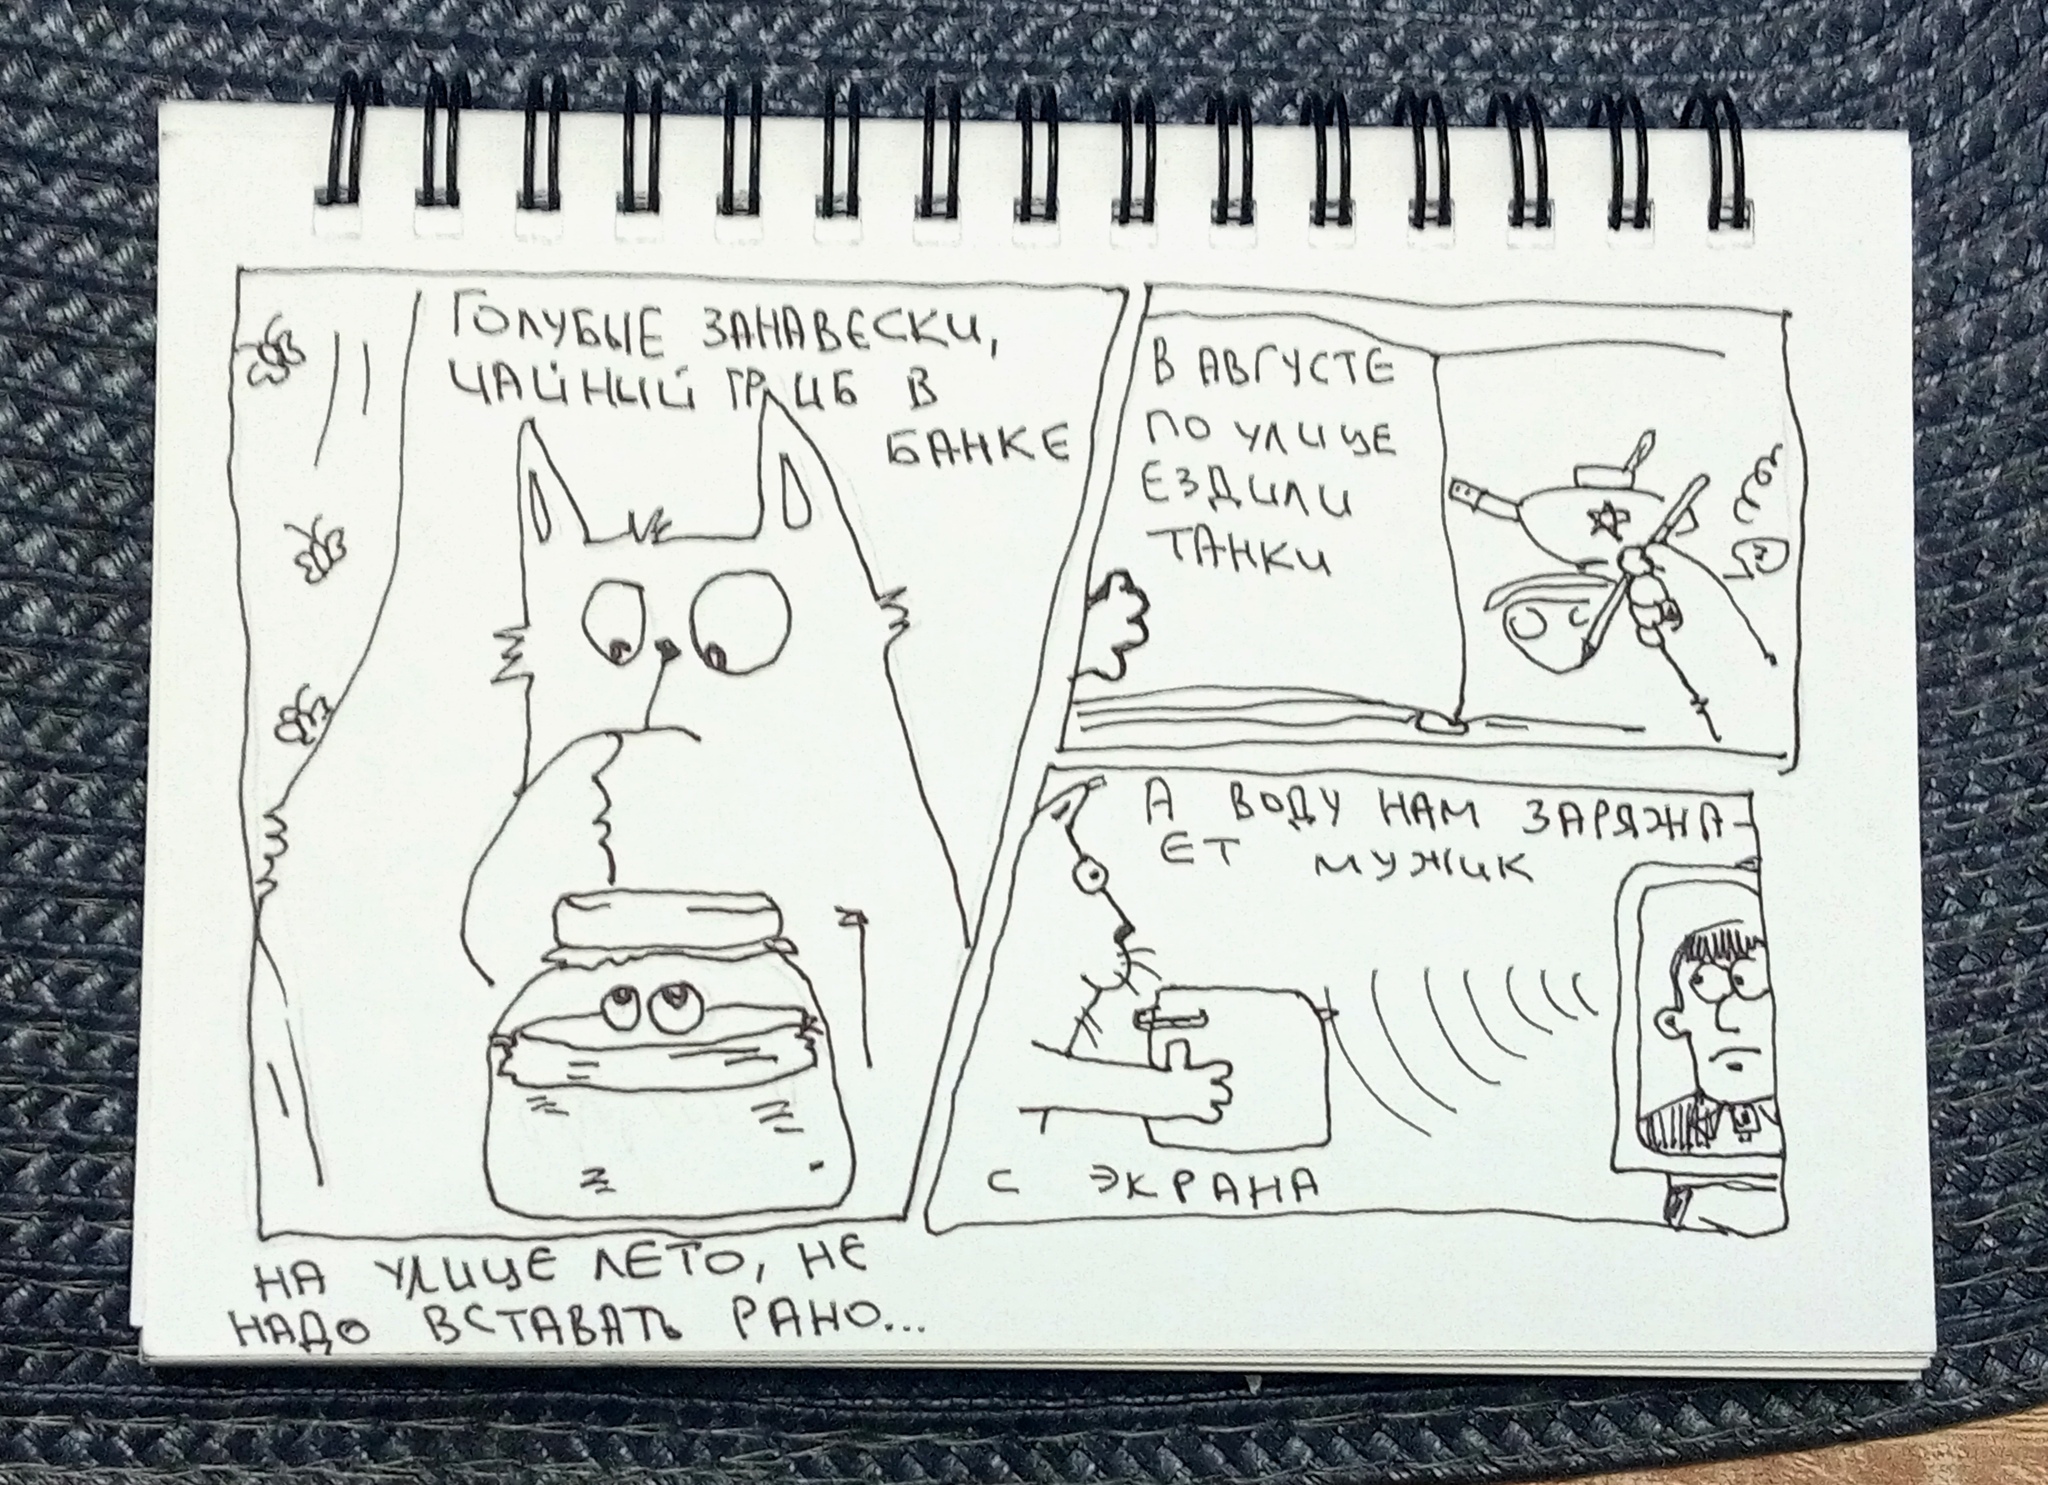 ГОЛУБЫЕ ЗАНАВЕСКИ,
ЧАЙНЫЙ ГРИБ В
БАНКЕ
НА УЛИЦЕ ЛЕТО, НЕ
НАДО ВСТАВАТЬ РАНО...
В АВГУСТЕ
ПО УЛИЦЕ
ЕЗДИЛИ
ТАНКИ
А ВОДУ НАМ ЗАРЯЖА-
ЕТ МУЖИК
С ЭКРАНА